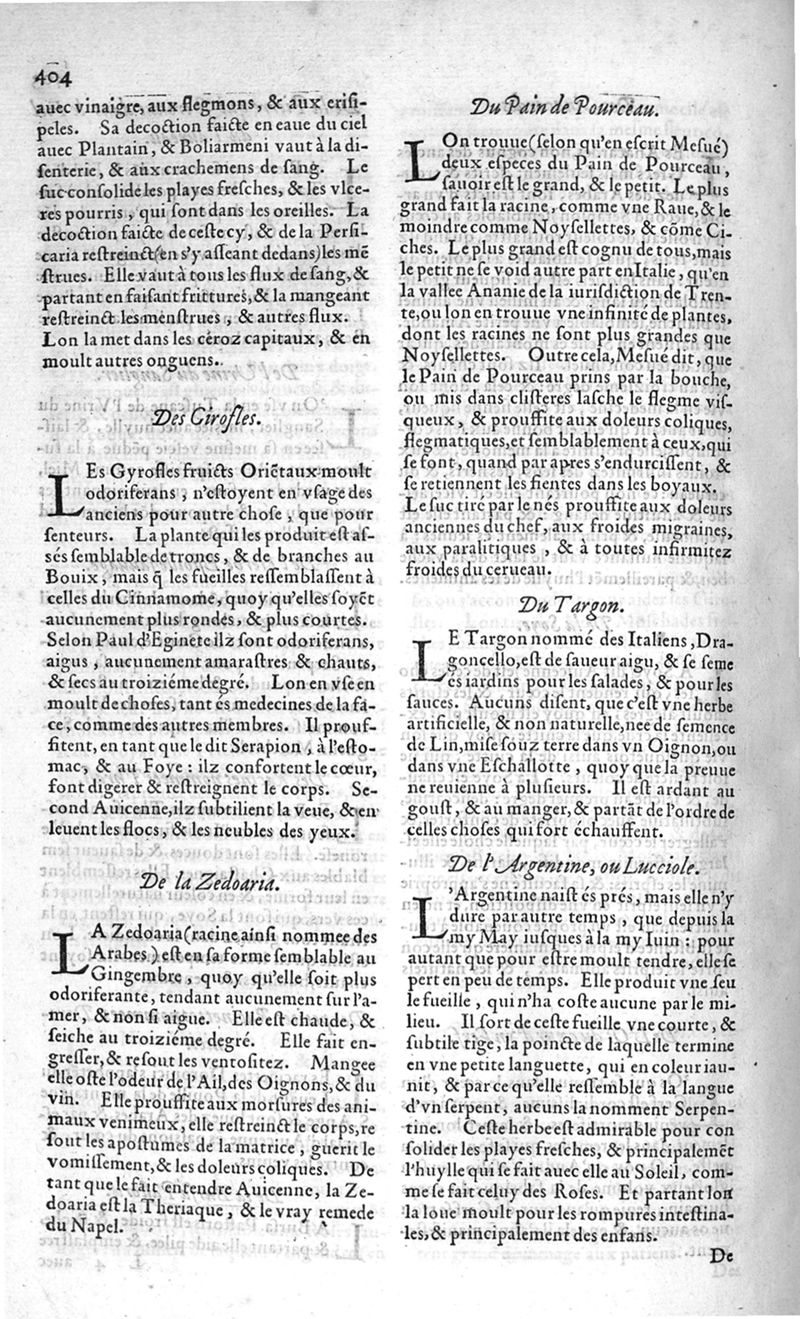 404
auec vinaigre, aux flegmons, & aux erisi-
peles. Sa decoction faicte en eaue du ciel
auec Plantain, & Boliarmeni vaut à la di-
senterie, & aux crachemens de sang. Le
suc consolide les playes fresches, & les vlce-
res pourris, qui sont dans les oreilles. La
decoction faicte de ceste cy, & de la Persi-
caria restreinct(en s'y asseant dedans)les mē
strues. Elle vaut à tous les flux de sang, &
partant en faisant frittures, & la mangeant
restreinct les menstrues, & autres flux.
Lon la met dans les ceroz capitaux, & en
moult autres onguens.
Des Girofles.
LEs Gyrofles fruicts Oriētaux moult
odoriferans, n'estoyent en vsage des
anciens pour autre chose, que pour
senteurs. La plante qui les produit est as-
sés semblable de troncs, & de branches au
Bouix, mais q̄ les fueilles ressemblassent à
celles du Cinnamome, quoy qu'elles soyēt
aucunement plus rondes, & plus courtes.
Selon Paul d'Eginete ilz sont odoriferans,
aigus, aucunement amarastres & chauts,
& secs au troiziéme degré. Lon en vse en
moult de choses, tant és medecines de la fa-
ce, comme des autres membres. Il prouf-
fitent, en tant que le dit Serapion, à l'esto-
mac, & au Foye : ilz confortent le cœur,
font digerer & restreignent le corps. Se-
cond Auicenne, ilz subtilient la veue, & en
leuent les flocs, & les neubles des yeux.
De la Zedoaria.
LA Zedoaria(racine ainsi nommee des
Arabes) est en sa forme semblable au
Gingembre, quoy qu'elle soit plus
odoriferante, tendant aucunement sur l'a-
mer, & non si aigue. Elle est chaude, &
seiche au troiziéme degré. Elle fait en-
gresser, & resout les ventositez. Mangee
elle oste l'odeur de l'Ail, des Oignons, & du
vin. Elle prouffite aux morsures des ani-
maux venimeux, elle restreinct le corps, re
sout les apostumes de la matrice, guerit le
vomissement, & les doleurs coliques. De
tant que le fait entendre Auicenne, la Ze-
doaria est la Theriaque, & le vray remede
du Napel.
Du Pain de Pourceau.
LOn trouue(selon qu'en escrit Mesué)
deux especes du Pain de Pourceau,
sauoir est le grand, & le petit. Le plus
grand fait la racine, comme vne Raue, & le
moindre comme Noysellettes, & cōme Ci-
ches. Le plus grand est cognu de tous, mais
le petit ne se void autre part en Italie, qu'en
la vallee Ananie de la iurisdiction de Tren-
te, ou lon en trouue vne infinité de plantes,
dont les racines ne sont plus grandes que
Noysellettes. Outre cela, Mesué dit, que
le Pain de Pourceau prins par la bouche,
ou mis dans clisteres lasche le flegme vis-
queux, & prouffite aux doleurs coliques,
flegmatiques, et semblablement à ceux, qui
se font, quand par apres s'endurcissent, &
se retiennent les fientes dans les boyaux.
Le suc tiré par le nés prouffite aux doleurs
anciennes du chef, aux froides migraines,
aux paralitiques, & à toutes infirmitez
froides du cerueau.
Du Targon.
LE Targon nommé des Italiens, Dra-
goncello, est de saueur aigu, & se seme
és iardins pour les salades, & pour les
sauces. Aucuns disent, que c'est vne herbe
artificielle, & non naturelle, nee de semence
de Lin, mise souz terre dans vn Oignon, ou
dans vne Eschallotte, quoy que la preuue
ne reuienne à plusieurs. Il est ardant au
goust, & au manger, & partāt de l'ordre de
celles choses qui fort échauffent.
De l'Argentine, ou Lucciole.
L'Argentine naist és prés, mais elle n'y
dure par autre temps, que depuis la
my May iusques à la my Iuin : pour
autant que pour estre moult tendre, elle se
pert en peu de temps. Elle produit vne seu
le fueille, qui n'ha coste aucune par le mi-
lieu. Il sort de ceste fueille vne courte, &
subtile tige, la poincte de laquelle termine
en vne petite languette, qui en coleur iau-
nit, & parce qu'elle ressemble à la langue
d'vn serpent, aucuns la nomment Serpen-
tine. Ceste herbe est admirable pour con
solider les playes fresches, & principalemēt
l'huylle qui se fait auec elle au Soleil, com-
me se fait celuy des Roses. Et partant lon
la loue moult pour les rompures intestina-
les, & principalement des enfans.
De